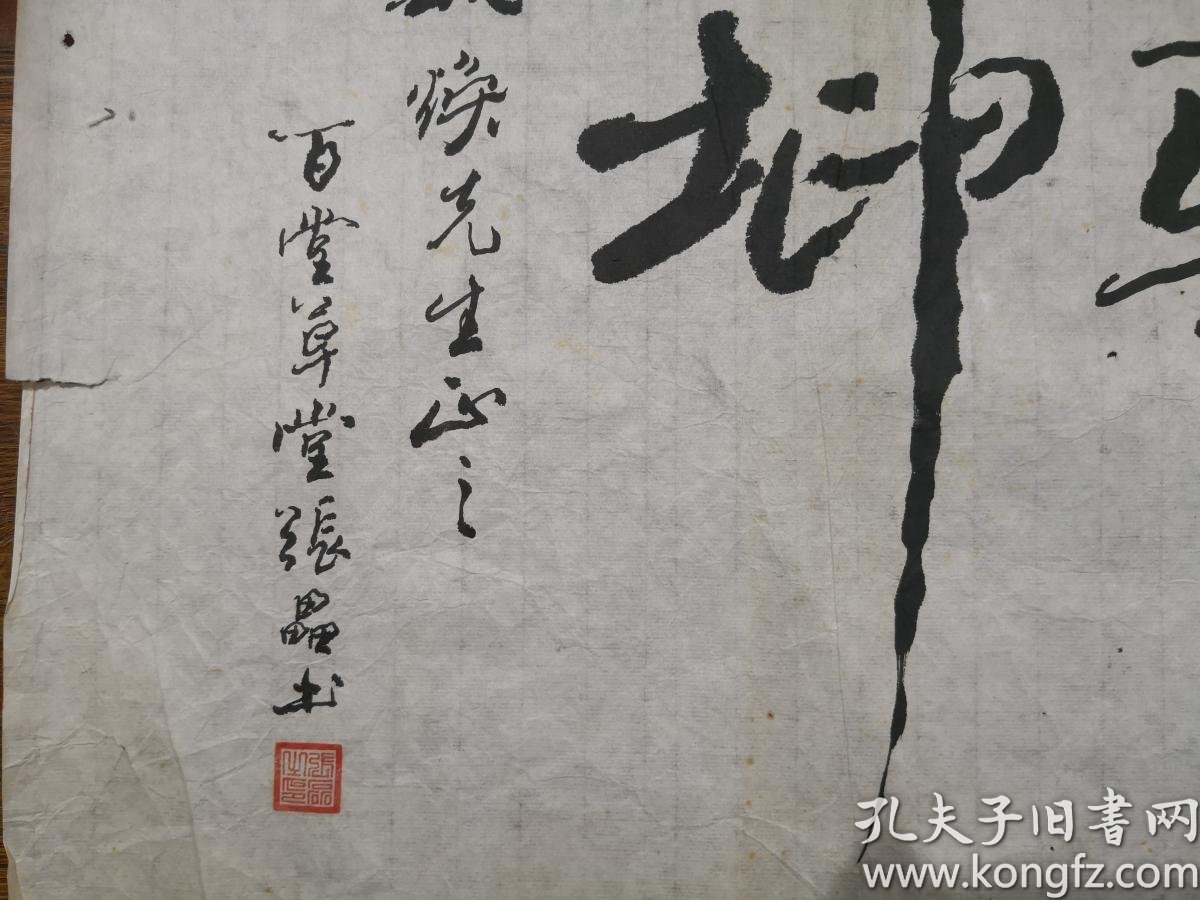 坤
煥先生正之
百堂草堂張畾书
張磊之印
孔夫子旧書网
www.kongfz.com